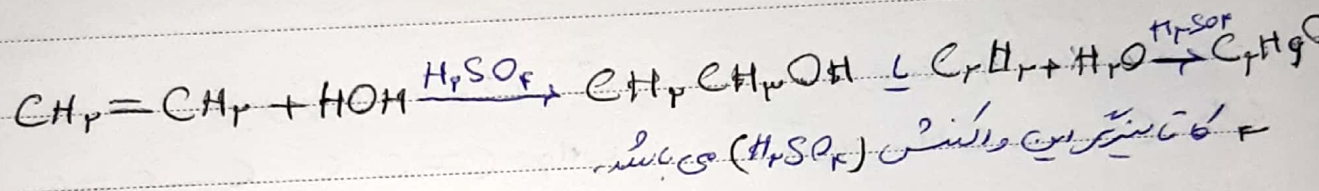 CH۲=CH۲ + HOH →H۲SO۴ CH۲CH۳OH یا C۲H۲ + H۲O →H۲SO۴ C۲H۹O
* کاتالیزگر این واکنش (H۲SO۴) می باشد.